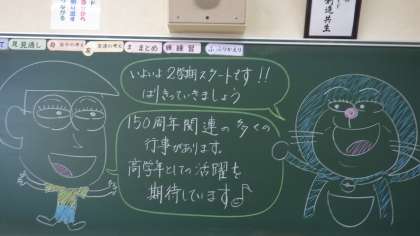 見見通し
友達の考え
まとめ
練習
ふふりかえり
いよいよ2学期スタートです!!
はりきっていきましょう
150周年関連の多くの
行事があります。
高学年としての活躍を
期待しています♪